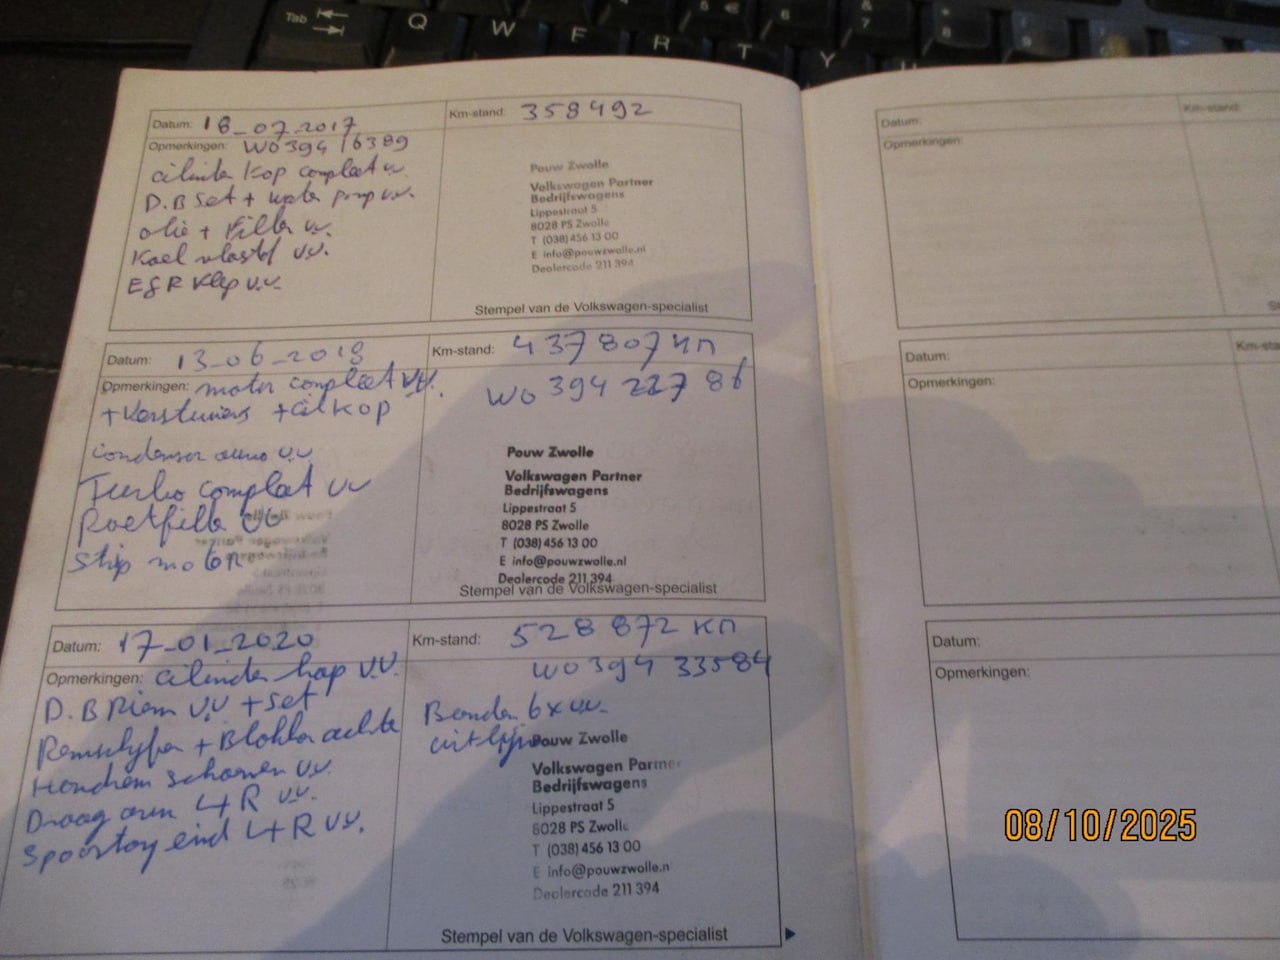 Tab Q W E R T Y
Datum: 18-07-2017
Km-stand: 358492
Opmerkingen: WO 394 16389
cilinder kop compleet v.v.
D.B set + water pomp v.v.
olie + Filter v.v.
Koel vloeistof v.v.
EGR Klep v.v.
Pouw Zwolle
Volkswagen Partner
Bedrijfswagens
Lippestraat 5
8028 PS Zwolle
T (038) 456 13 00
E info@pouwzwolle.nl
Dealercode 211 394
Stempel van de Volkswagen-specialist
Datum: 13-06-2018
Km-stand: 437807 km
Opmerkingen: motor compleet v.v.
+ Verstuivers + cil kop
condensor airco v.v
Turbo compleet vv
Roetfilter vv
strip motor
WO 394 22786
Pouw Zwolle
Volkswagen Partner
Bedrijfswagens
Lippestraat 5
8028 PS Zwolle
T (038) 456 13 00
E info@pouwzwolle.nl
Dealercode 211 394
Stempel van de Volkswagen-specialist
Datum: 17-01-2020
Km-stand: 528 872 km
Opmerkingen: cilinder kop v.v.
D.B Riem v.v + set
Remschijfen + Blokken achter
Handrem schoenen v.v.
Draag arm L+R v.v.
Spoorstang eind L+R v.v.
WO 394 33584
Banden 6x v.v.
uitlijnen
Pouw Zwolle
Volkswagen Partner
Bedrijfswagens
Lippestraat 5
8028 PS Zwolle
T (038) 456 13 00
E info@pouwzwolle.n
Dealercode 211 394
Stempel van de Volkswagen-specialist
Datum:
Km-stand:
Opmerkingen:
Datum:
Km-sta
Opmerkingen:
Datum:
Opmerkingen:
08/10/2025